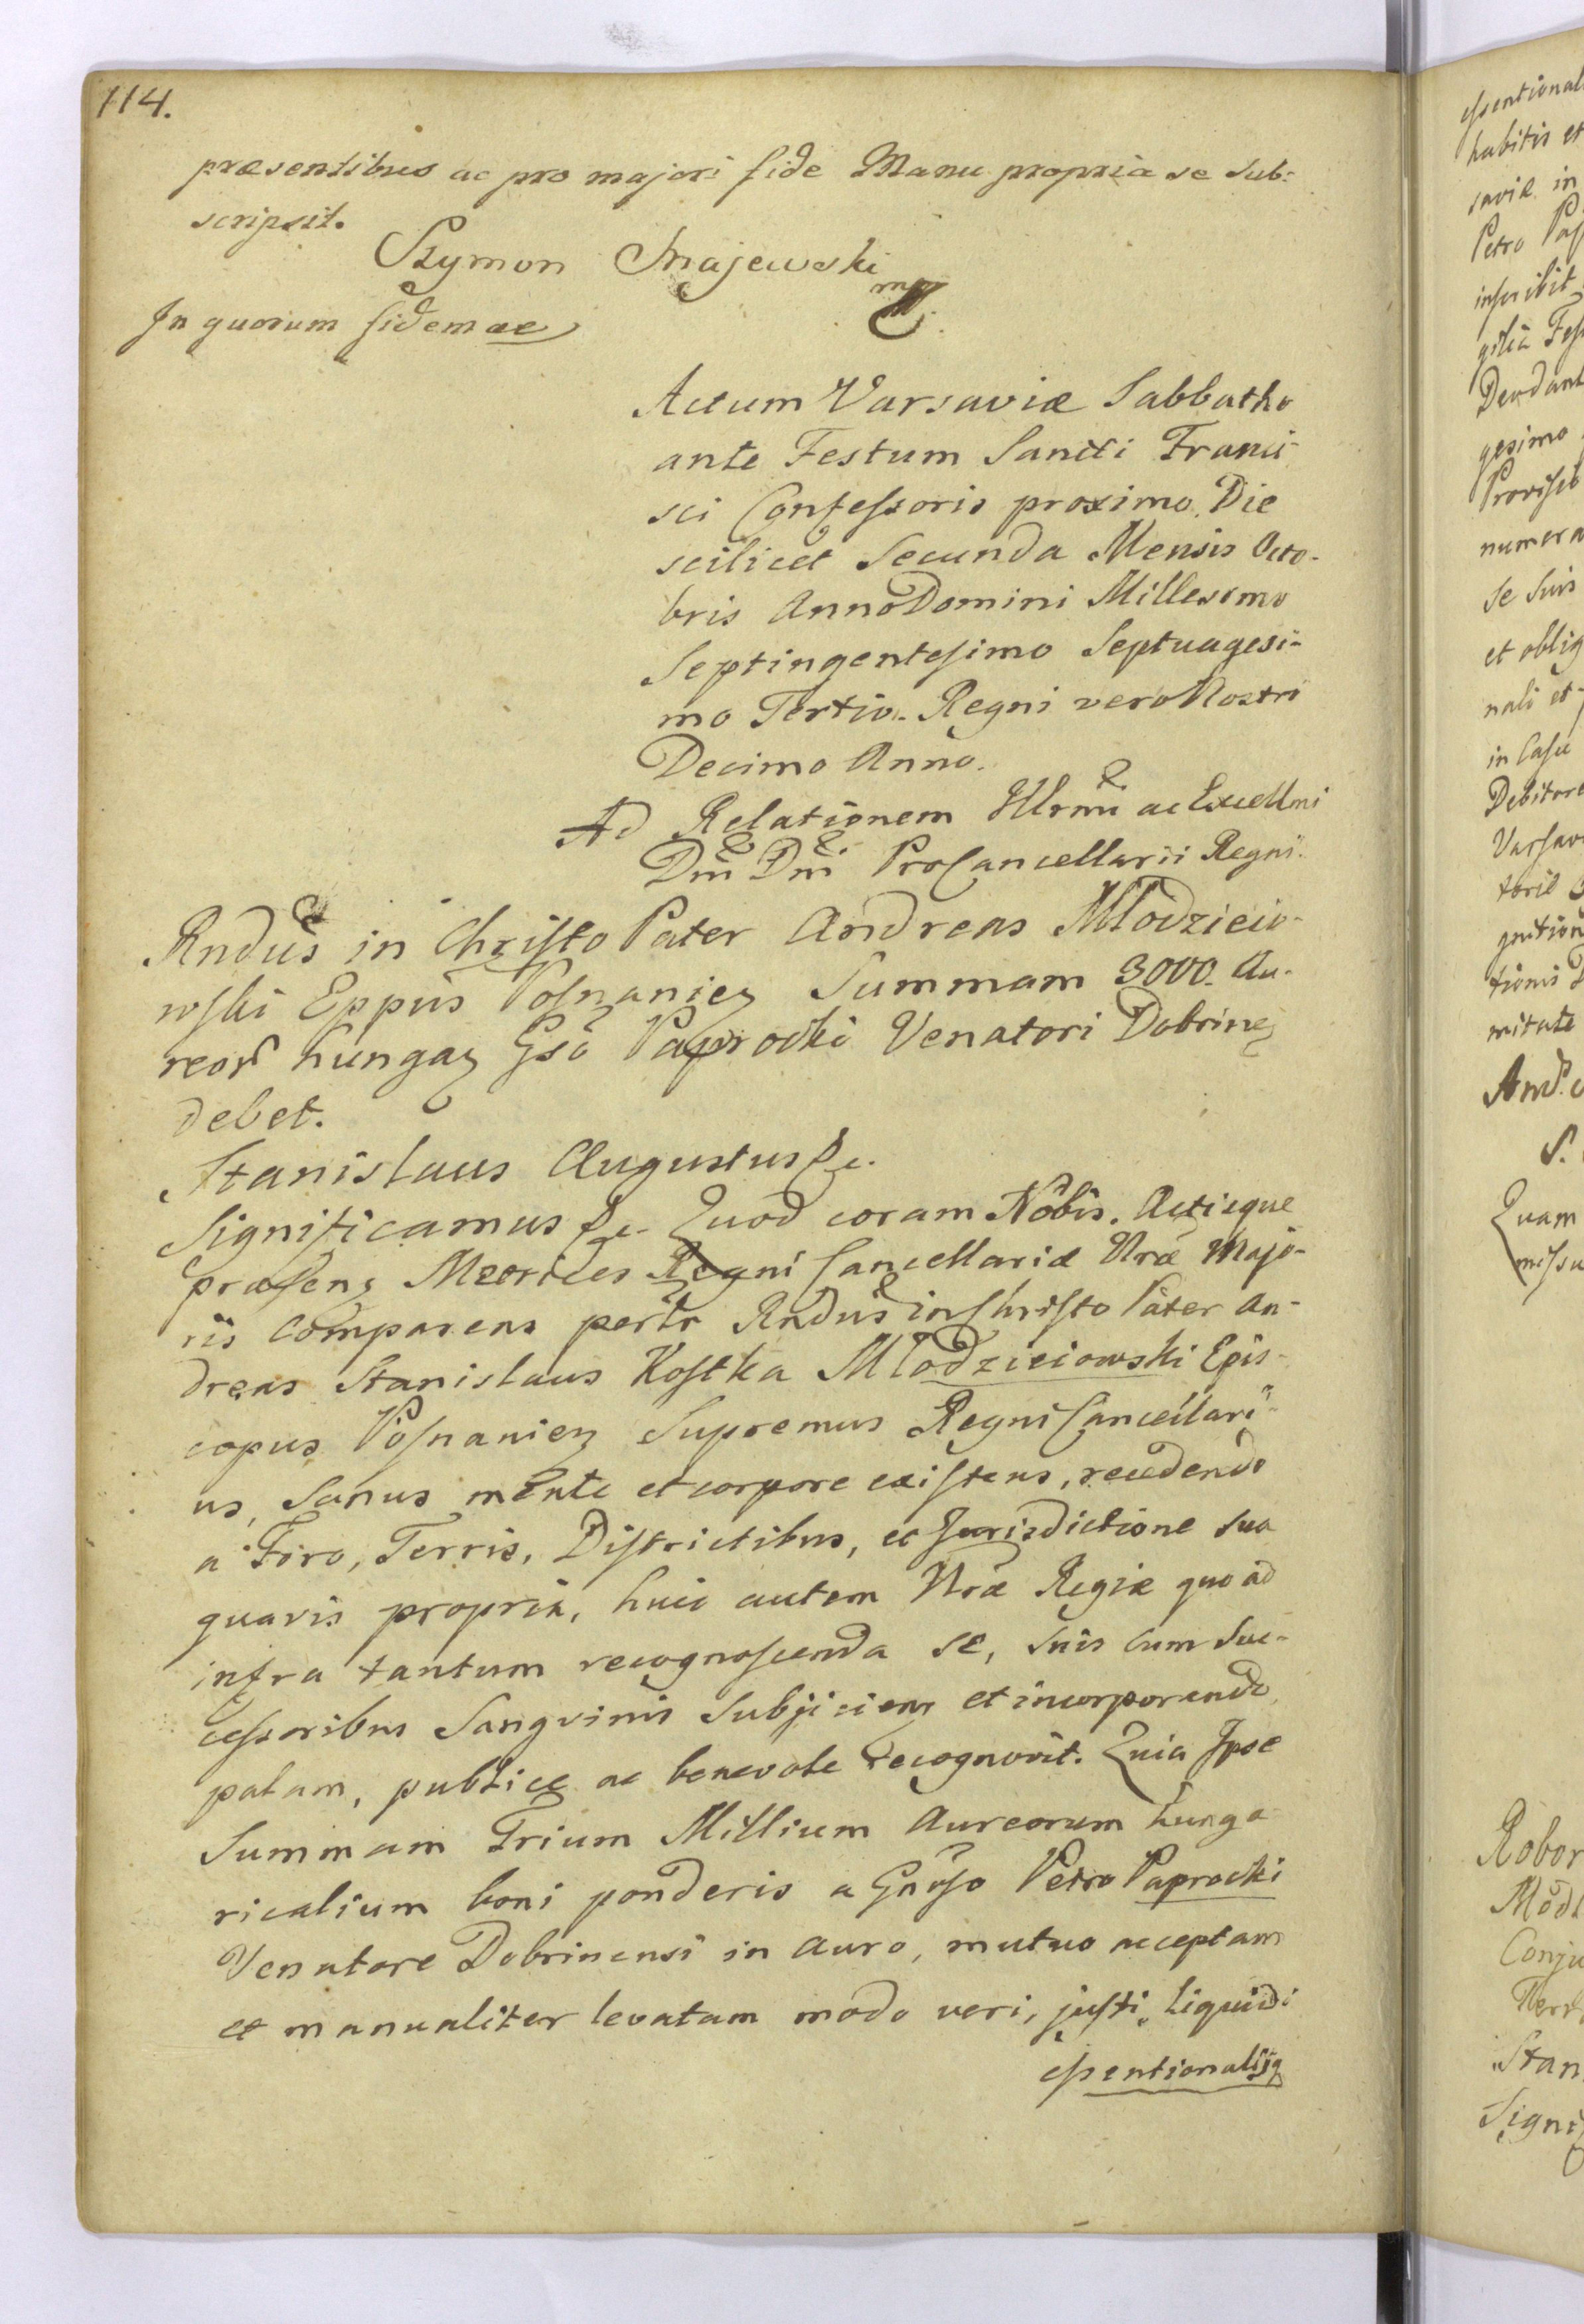 114.
præsentibus ac pro majori fide Manu propria se sub:
scripsit.
Szymon Smajewski
mp
In quorum fidem ac
Actum Varsaviæ Sabbatho
ante Festum Sancti Franci-
sci Confessoris proximo. Die
scilicet Secunda Mensis Octo-
bris Anno Domini Millesimo
Septingentesimo Septuagesi-
mo Tertio. Regni vero Nostri
Decimo Anno.
Ad Relationem Illrmi ac Excellmi
Dni Dni ProCancellarii Regni.
Rndus in Christo Pater Andreas Młodzieio-
wski Eppus Posnanien Summam 3000. Au-
reor hungar Gso Paprocki Venatori Dobrinen
debet.
Stanislaus Augustus &c.
Significamus &c. Quod coram Nobis. Actisque
præsens Metrices Regni Cancellariæ Nræ Majo-
ris Comparens pertr Rndus in Christo Pater An-
dreas Stanislaus Kostka Młodzieiowski Epis-
copus Posnanien Supremus Regni Cancellari-
us, sanus mente et corpore existens, recedendo
a Foro, Terris, Districtibus, et Jurisdictione sua
quavis propria, huic autem Nræ Regiæ quo ad
infra tantum recognoscenda se, suis cum suc-
cessoribus Sangvinis subjiciens et incorporando,
palam, publice ac benevole recognovit. Quia Ipse
Summam Trium Millium Aureorum hunga-
ricalium boni ponderis a Gnoso Petro Paprocki
Venatore Dobrinensi in Auro, mutuo acceptam
et manualiter levatam modo veri, justi, liquidi
essentionalisq
essentional
habitis et
saviæ in
Petro Pap
inscribit
gilia Fes
Deodant
gesimo
Proviseb
numera
se suis
et oblig
nali et
in Casu
Debitore
Varsav
toril
gnition
tionis
mitate
And.
S.
Quam
missu
Robor
Młodz
Conju
Stan
Signif